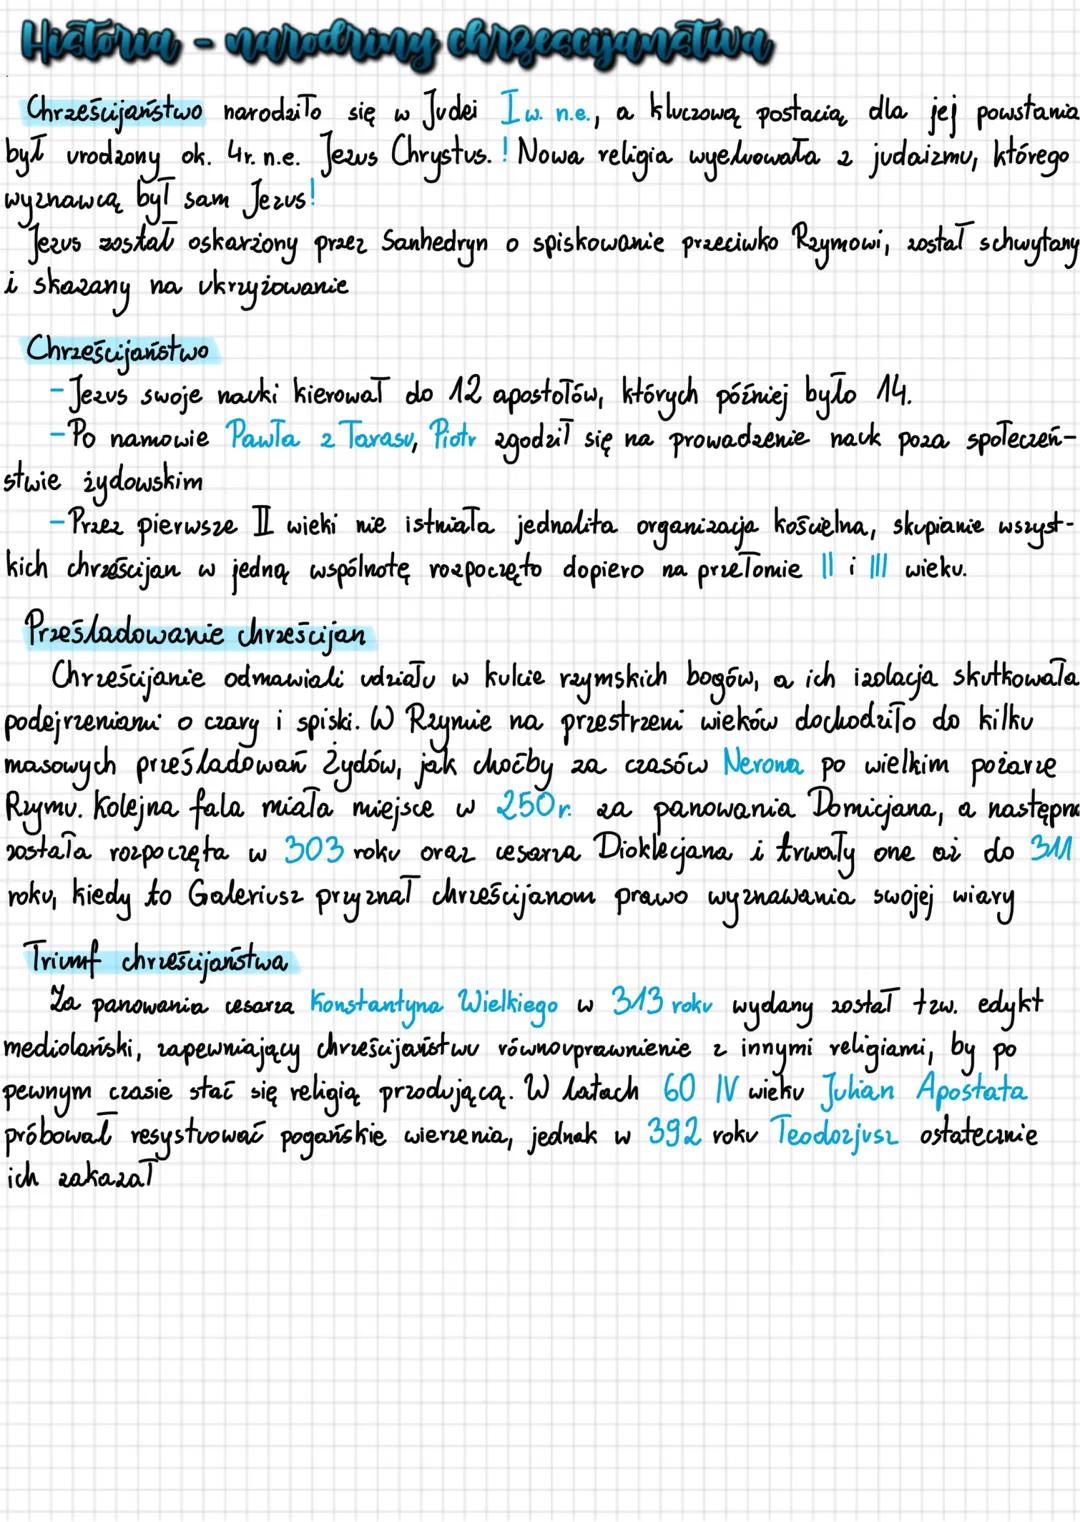 Historia - narodziny chrześcijaństwa
Chrześcijaństwo narodziło się w Judei I w. n.e., a kluczową postacią dla jej powstania
był urodzony ok. 4r. n.e. Jezus Chrystus. ! Nowa religia wyeluowała z judaizmu, którego
wyznawcą był sam Jezus!
Jezus został oskarżony przez Sanhedryn o spiskowanie przeciwko Rzymowi, został schwytany
i skazany na ukrzyżowanie
Chrześcijaństwo
- Jezus swoje nauki kierował do 12 apostołów, których później było 14.
- Po namowie Pawła z Tarasu, Piotr zgodził się na prowadzenie nauk poza społeczeń-
stwie żydowskim
- Przez pierwsze II wieki nie istniała jednolita organizacja kościelna, skupianie wszyst-
kich chrześcijan w jedną wspólnotę rozpoczęto dopiero na przełomie II i III wieku.
Prześladowanie chrześcijan
Chrześcijanie odmawiali udziału w kulcie rzymskich bogów, a ich izolacja skutkowała
podejrzeniami o czary i spiski. W Rzymie na przestrzeni wieków dochodziło do kilku
masowych prześladowań Żydów, jak choćby za czasów Nerona po wielkim pożarze
Rzymu. Kolejna fala miała miejsce w 250r. za panowania Domicjana, a następna
została rozpoczęta w 303 roku oraz cesarza Dioklecjana i trwały one aż do 311
roku, kiedy to Galeriusz przyznał chrześcijanom prawo wyznawania swojej wiary
Triumf chrześcijaństwa
Za panowania cesarza Konstantyna Wielkiego w 313 roku wydany został tzw. edykt
mediolański, zapewniający chrześcijaństwu równouprawnienie z innymi religiami, by po
pewnym czasie stać się religią przodującą. W latach 60 IV wieku Julian Apostata
próbował resystuować pogańskie wierzenia, jednak w 392 roku Teodozjusz ostatecznie
ich zakazał